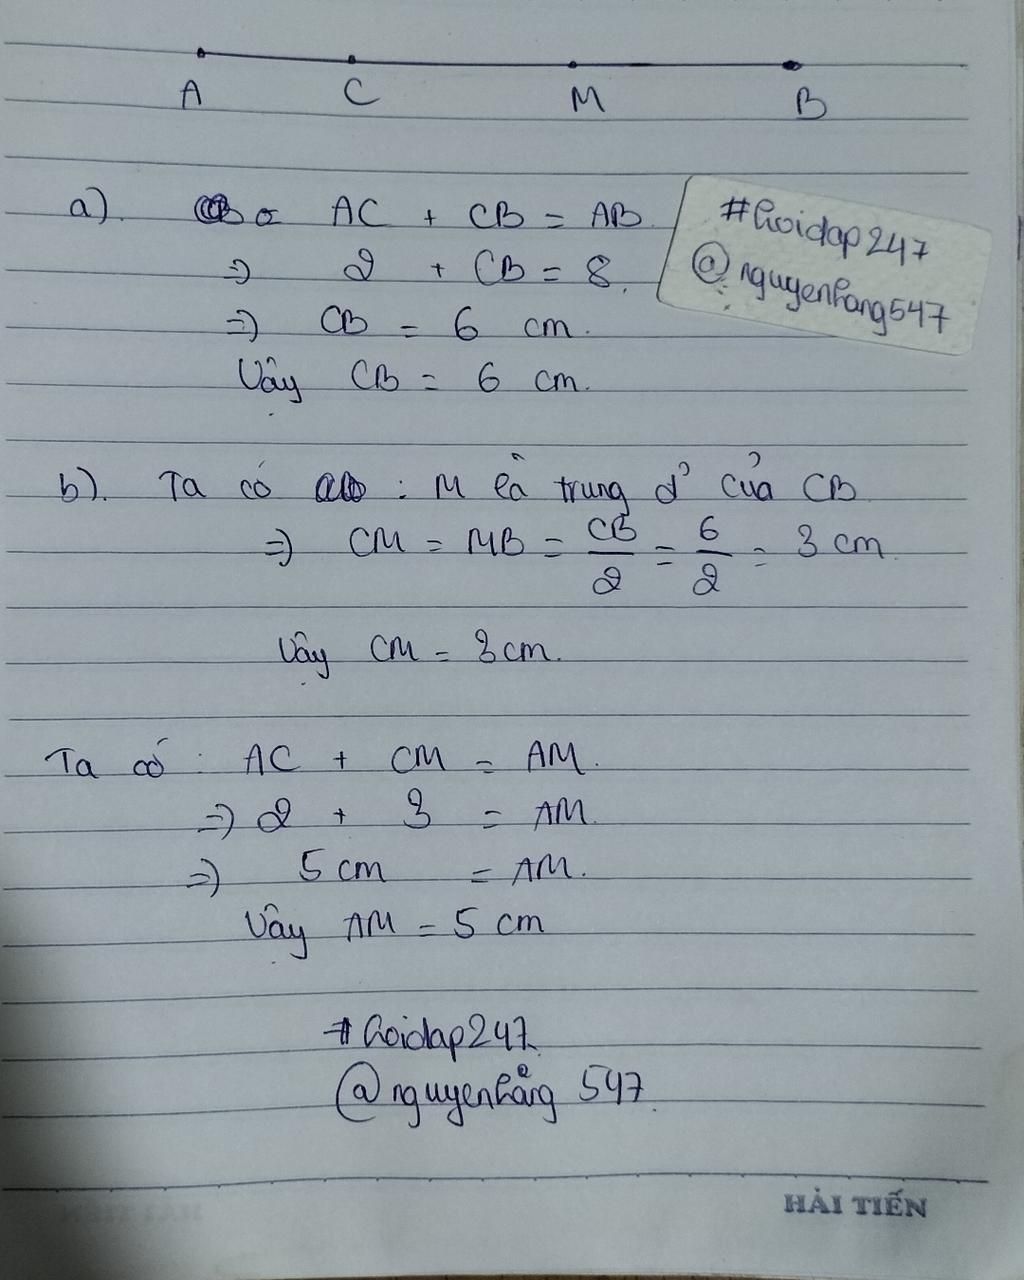 A C M B
a). AC + CB = AB.
#hoidap247
@nguyenhang547
=> 2 + CB = 8.
=> CB = 6 cm.
Vậy CB = 6 cm.
b). Ta có : M là trung đ' của CB
=> CM = MB = CB/2 = 6/2 = 3 cm.
Vậy CM = 3 cm.
Ta có : AC + CM = AM.
=> 2 + 3 = AM.
=> 5 cm = AM.
Vậy AM = 5 cm
#hoidap247
@nguyenhằng 547.
HẢI TIẾN